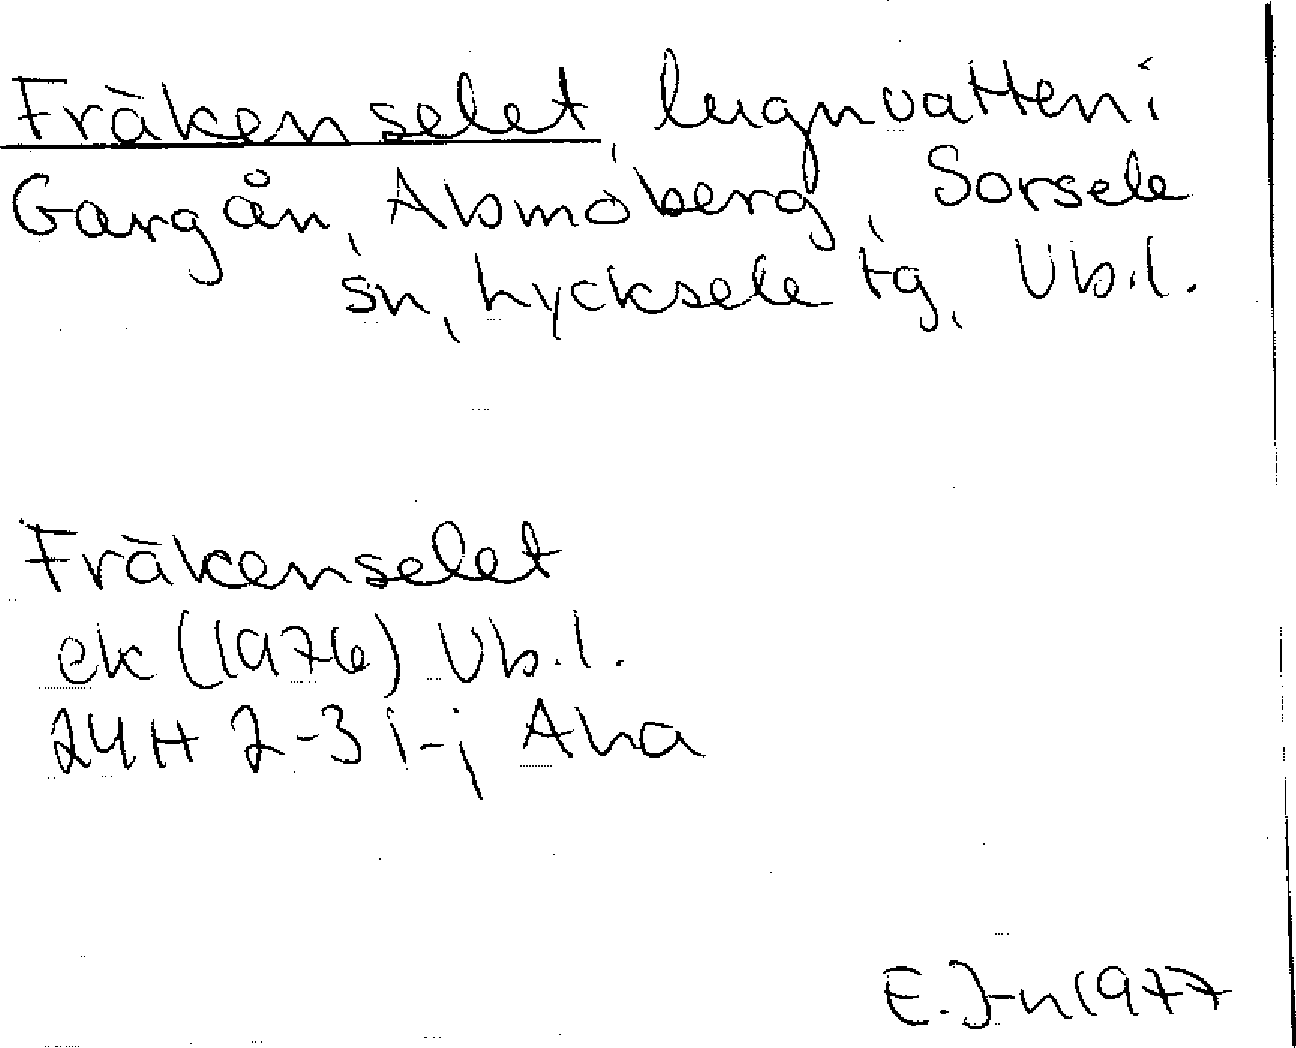 Fräkenselet, lugnvatten i
Gargån, Absmoberg, Sorsele
sn, Lycksele tg, Vb.l.
Fräkenselet
ek (1976) Vb.l.
24H 2-3 i-j Aha
E.J-n 1977